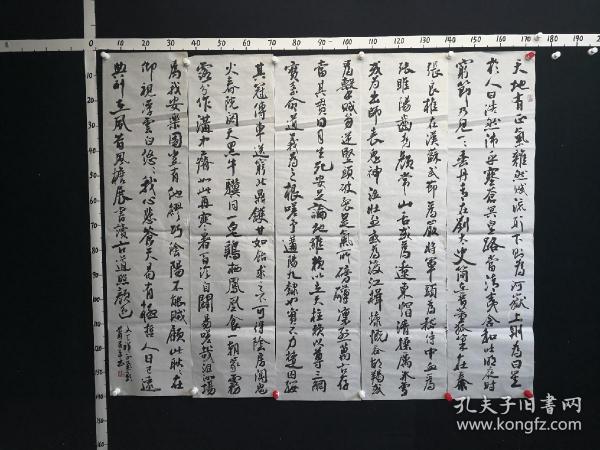 0 10 20 30 40 50 60 70 80 90 100 110 120 130 140 150 160 170
天地有正氣雜然賦流形下則為河嶽上則為日星
於人曰浩然沛乎塞蒼冥皇路當清夷含和吐明庭時
窮節乃見一一垂丹青在齊太史簡在晉董狐筆在秦
張良椎在漢蘇武節為嚴將軍頭為嵇侍中血為
張睢陽齒為顏常山舌或為遼東帽清操厲冰雪
或為出師表鬼神泣壯烈或為渡江楫慷慨吞胡羯或
為擊賊笏逆豎頭破裂是氣所磅礴凜烈萬古存
當其貫日月生死安足論地維賴以立天柱賴以尊三綱
實系命道義為之根嗟予遘陽九隸也實不力楚囚纓
其冠傳車送窮北鼎鑊甘如飴求之不可得陰房闃鬼
火春院閟天黑牛驥同一皂雞棲鳳凰食一朝蒙霧
露分作溝中瘠如此再寒暑百沴自闢易嗟哉沮洳場
為我安樂國豈有他繆巧陰陽不能賊顧此耿耿在
仰視浮雲白悠悠我心悲蒼天曷有極哲人日已遠
典刑在夙昔風檐展書讀古道照顏色
孔夫子旧书网
www.kongfz.com